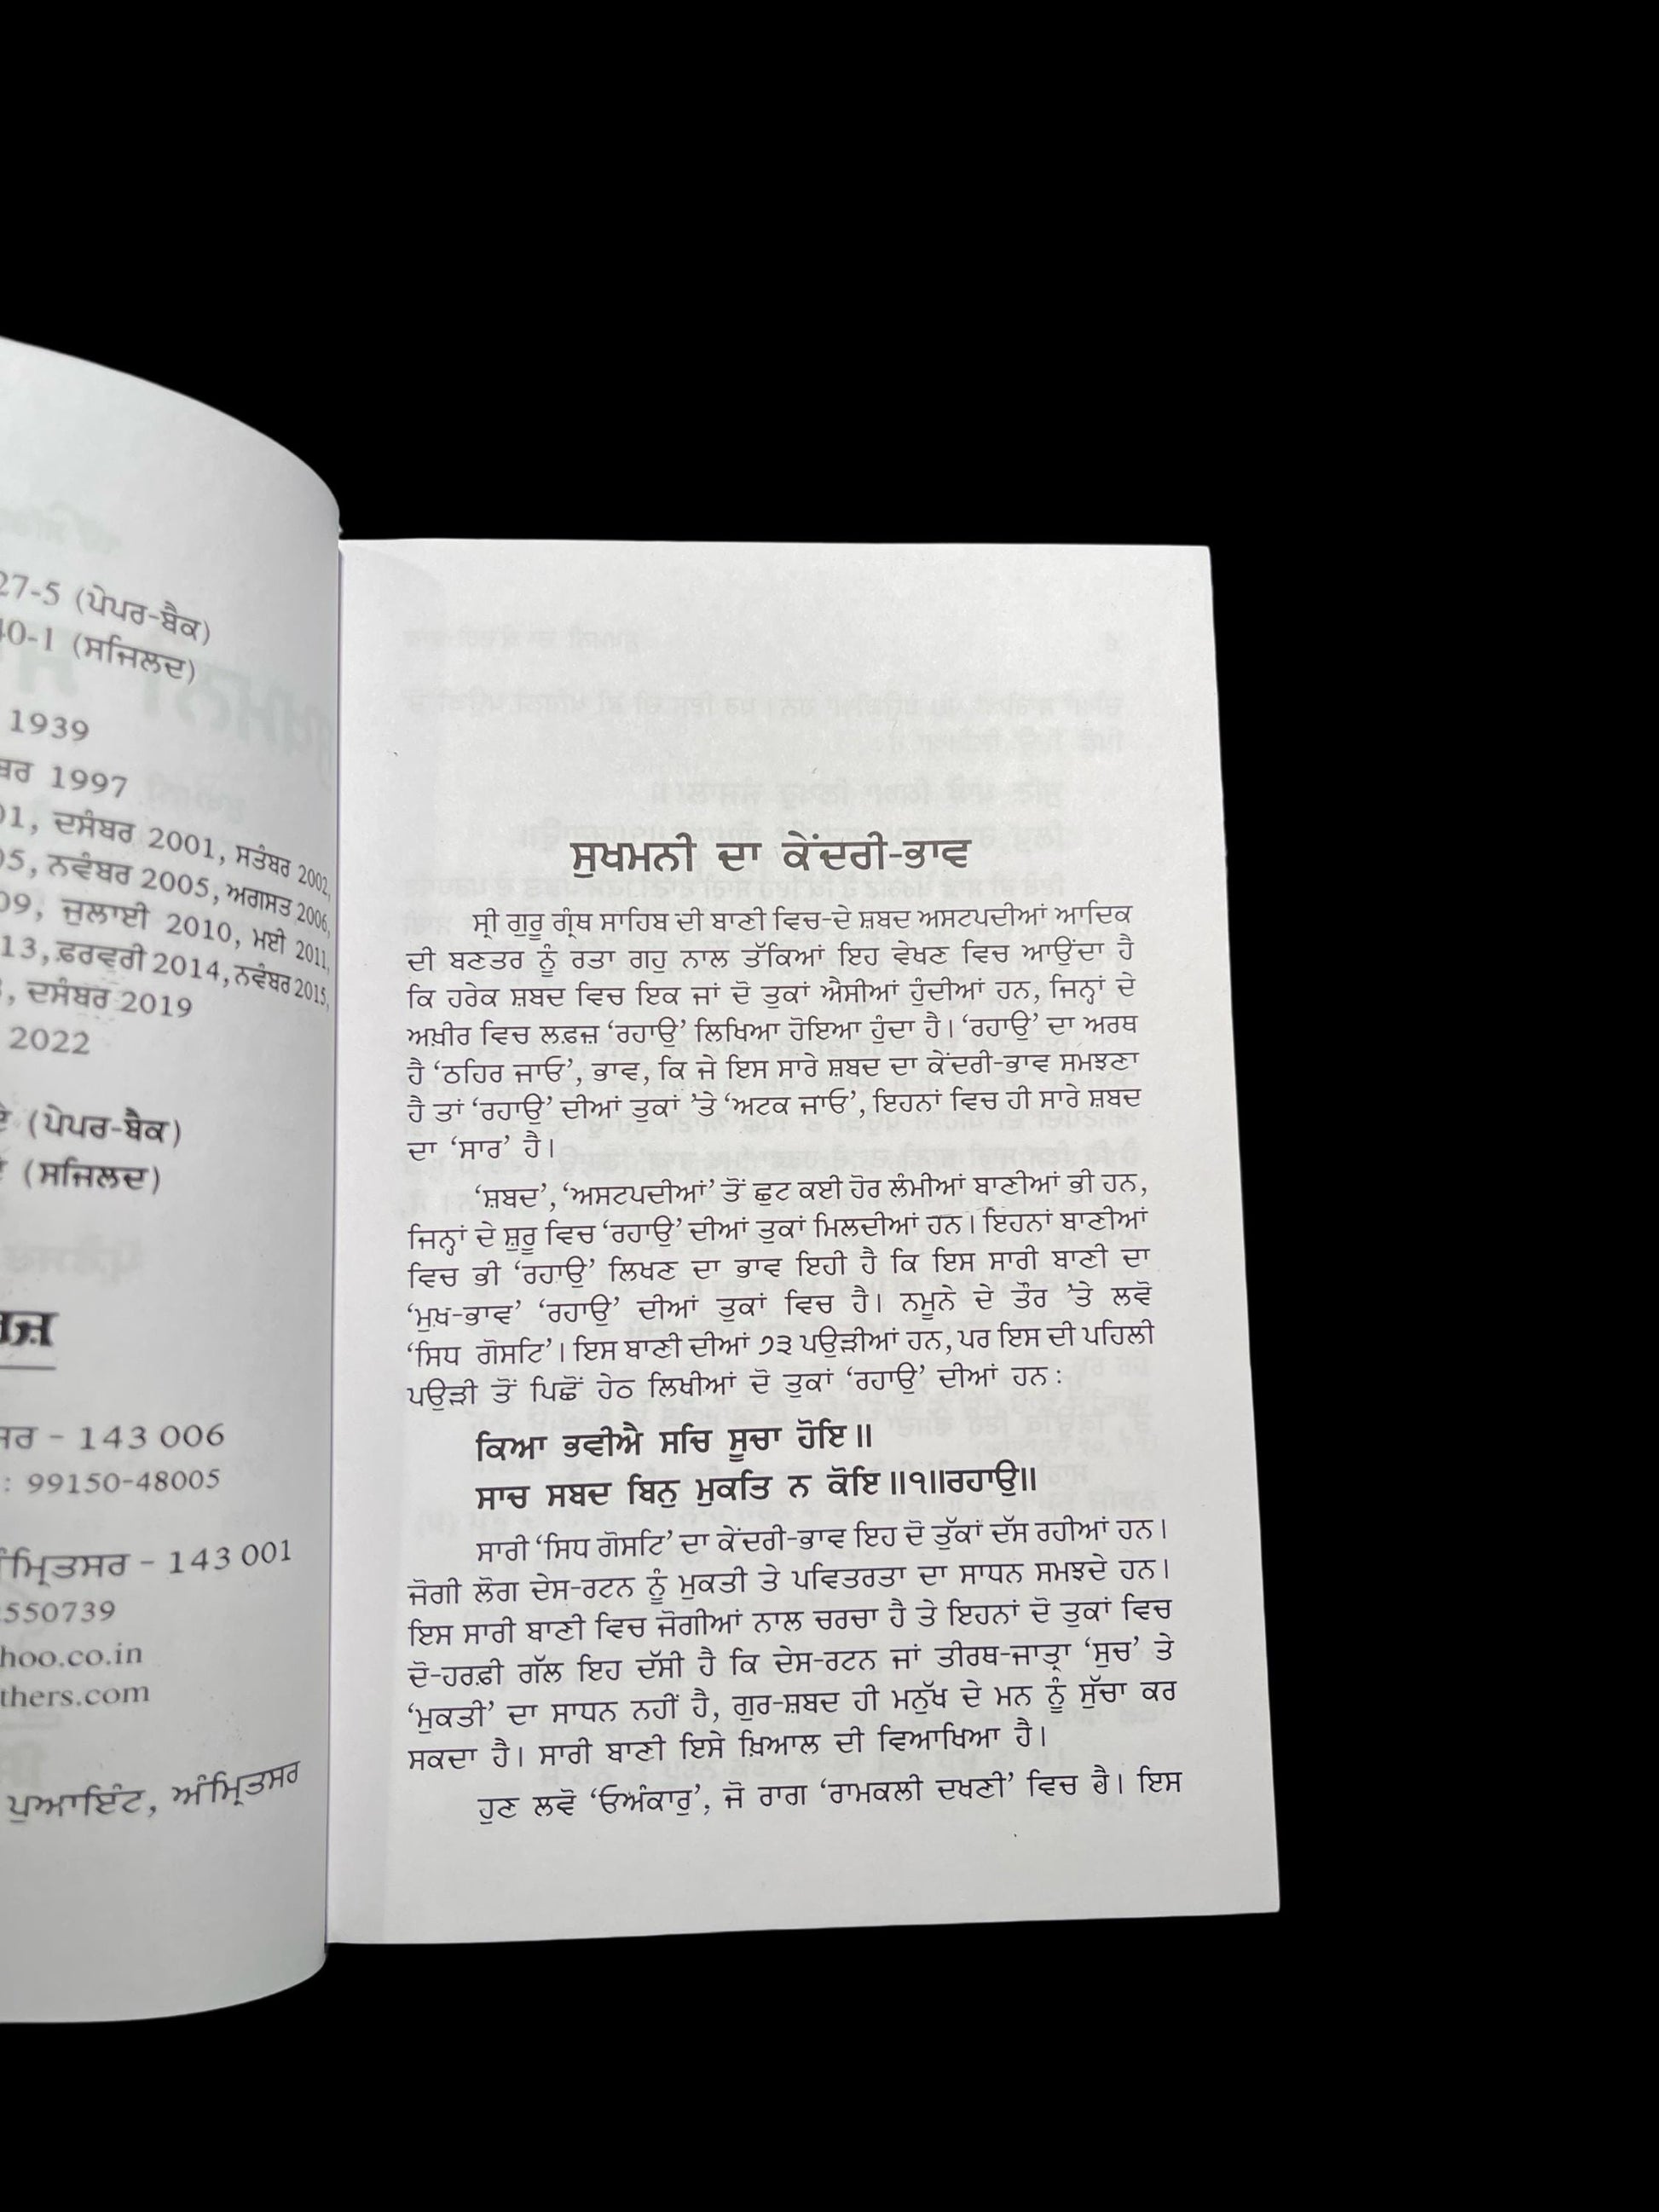 27-5 (ਪੇਪਰ-ਬੈਕ)
40-1 (ਸਜਿਲਦ)
1939
1997
01, ਦਸੰਬਰ 2001, ਸਤੰਬਰ 2002,
05, ਨਵੰਬਰ 2005, ਅਗਸਤ 2006,
09, ਜੁਲਾਈ 2010, ਮਈ 2011,
13, ਫ਼ਰਵਰੀ 2014, ਨਵੰਬਰ 2015,
, ਦਸੰਬਰ 2019
2022
(ਪੇਪਰ-ਬੈਕ)
(ਸਜਿਲਦ)
ਸਰ - 143 006
: 99150-48005
ਅੰਮ੍ਰਿਤਸਰ - 143 001
2550739
hoo.co.in
thers.com
ਪੁਆਇੰਟ, ਅੰਮ੍ਰਿਤਸਰ
ਸੁਖਮਨੀ ਦਾ ਕੇਂਦਰੀ-ਭਾਵ
ਸ੍ਰੀ ਗੁਰੂ ਗ੍ਰੰਥ ਸਾਹਿਬ ਦੀ ਬਾਣੀ ਵਿਚ-ਦੇ ਸ਼ਬਦ ਅਸਟਪਦੀਆਂ ਆਦਿਕ
ਦੀ ਬਣਤਰ ਨੂੰ ਰਤਾ ਗਹੁ ਨਾਲ ਤੱਕਿਆਂ ਇਹ ਵੇਖਣ ਵਿਚ ਆਉਂਦਾ ਹੈ
ਕਿ ਹਰੇਕ ਸ਼ਬਦ ਵਿਚ ਇਕ ਜਾਂ ਦੋ ਤੁਕਾਂ ਐਸੀਆਂ ਹੁੰਦੀਆਂ ਹਨ, ਜਿਨ੍ਹਾਂ ਦੇ
ਅਖ਼ੀਰ ਵਿਚ ਲਫ਼ਜ਼ ‘ਰਹਾਉ’ ਲਿਖਿਆ ਹੋਇਆ ਹੁੰਦਾ ਹੈ। ‘ਰਹਾਉ’ ਦਾ ਅਰਥ
ਹੈ ‘ਠਹਿਰ ਜਾਓ’, ਭਾਵ, ਕਿ ਜੇ ਇਸ ਸਾਰੇ ਸ਼ਬਦ ਦਾ ਕੇਂਦਰੀ-ਭਾਵ ਸਮਝਣਾ
ਹੈ ਤਾਂ ‘ਰਹਾਉ’ ਦੀਆਂ ਤੁਕਾਂ ’ਤੇ ‘ਅਟਕ ਜਾਓ’, ਇਹਨਾਂ ਵਿਚ ਹੀ ਸਾਰੇ ਸ਼ਬਦ
ਦਾ ‘ਸਾਰ’ ਹੈ।
‘ਸ਼ਬਦ’, ‘ਅਸਟਪਦੀਆਂ’ ਤੋਂ ਛੁਟ ਕਈ ਹੋਰ ਲੰਮੀਆਂ ਬਾਣੀਆਂ ਭੀ ਹਨ,
ਜਿਨ੍ਹਾਂ ਦੇ ਸ਼ੁਰੂ ਵਿਚ ‘ਰਹਾਉ’ ਦੀਆਂ ਤੁਕਾਂ ਮਿਲਦੀਆਂ ਹਨ। ਇਹਨਾਂ ਬਾਣੀਆਂ
ਵਿਚ ਭੀ ‘ਰਹਾਉ’ ਲਿਖਣ ਦਾ ਭਾਵ ਇਹੀ ਹੈ ਕਿ ਇਸ ਸਾਰੀ ਬਾਣੀ ਦਾ
‘ਮੁਖ਼-ਭਾਵ’ ‘ਰਹਾਉ’ ਦੀਆਂ ਤੁਕਾਂ ਵਿਚ ਹੈ। ਨਮੂਨੇ ਦੇ ਤੌਰ ’ਤੇ ਲਵੋ
‘ਸਿਧ ਗੋਸਟਿ’। ਇਸ ਬਾਣੀ ਦੀਆਂ ੭੩ ਪਉੜੀਆਂ ਹਨ, ਪਰ ਇਸ ਦੀ ਪਹਿਲੀ
ਪਉੜੀ ਤੋਂ ਪਿਛੋਂ ਹੇਠ ਲਿਖੀਆਂ ਦੋ ਤੁਕਾਂ ‘ਰਹਾਉ’ ਦੀਆਂ ਹਨ :
ਕਿਆ ਭਵੀਐ ਸਚਿ ਸੂਚਾ ਹੋਇ॥
ਸਾਚ ਸਬਦ ਬਿਨੁ ਮੁਕਤਿ ਨ ਕੋਇ॥੧॥ਰਹਾਉ॥
ਸਾਰੀ ‘ਸਿਧ ਗੋਸਟਿ’ ਦਾ ਕੇਂਦਰੀ-ਭਾਵ ਇਹ ਦੋ ਤੁੱਕਾਂ ਦੱਸ ਰਹੀਆਂ ਹਨ।
ਜੋਗੀ ਲੋਗ ਦੇਸ-ਰਟਨ ਨੂੰ ਮੁਕਤੀ ਤੇ ਪਵਿਤਰਤਾ ਦਾ ਸਾਧਨ ਸਮਝਦੇ ਹਨ।
ਇਸ ਸਾਰੀ ਬਾਣੀ ਵਿਚ ਜੋਗੀਆਂ ਨਾਲ ਚਰਚਾ ਹੈ ਤੇ ਇਹਨਾਂ ਦੋ ਤੁਕਾਂ ਵਿਚ
ਦੋ-ਹਰਫ਼ੀ ਗੱਲ ਇਹ ਦੱਸੀ ਹੈ ਕਿ ਦੇਸ-ਰਟਨ ਜਾਂ ਤੀਰਥ-ਜਾਤ੍ਰਾ ‘ਸੁਚ’ ਤੇ
‘ਮੁਕਤੀ’ ਦਾ ਸਾਧਨ ਨਹੀਂ ਹੈ, ਗੁਰ-ਸ਼ਬਦ ਹੀ ਮਨੁੱਖ ਦੇ ਮਨ ਨੂੰ ਸੁੱਚਾ ਕਰ
ਸਕਦਾ ਹੈ। ਸਾਰੀ ਬਾਣੀ ਇਸੇ ਖ਼ਿਆਲ ਦੀ ਵਿਆਖਿਆ ਹੈ।
ਹੁਣ ਲਵੋ ‘ਓਅੰਕਾਰੁ’, ਜੋ ਰਾਗ ‘ਰਾਮਕਲੀ ਦਖਣੀ’ ਵਿਚ ਹੈ। ਇਸ